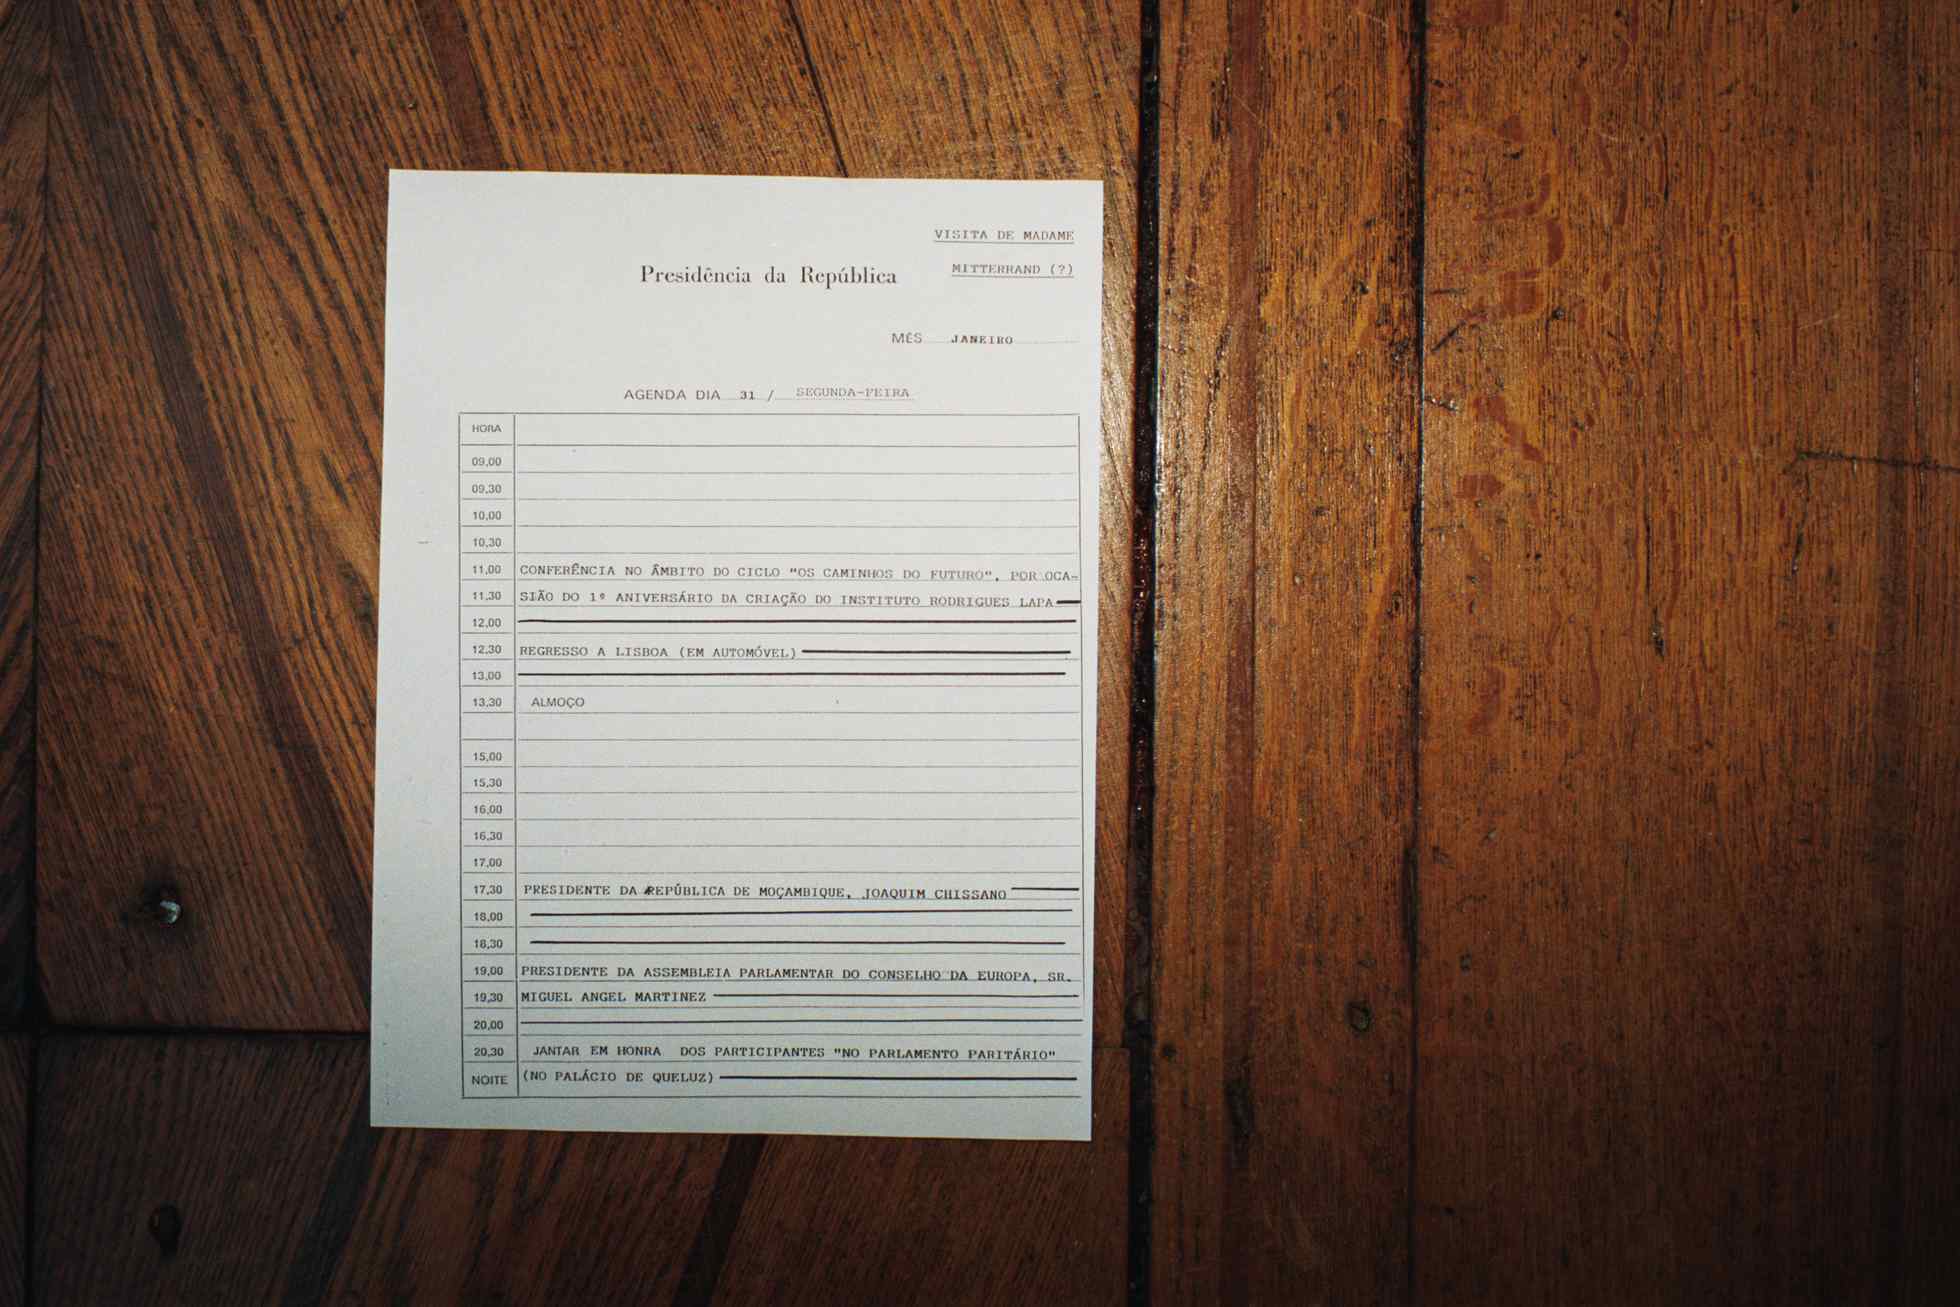 VISITA DE MADAME
Presidência da República
MITTERRAND (?)
MÊS JANEIRO
AGENDA DIA 31 / SEGUNDA-FEIRA
HORA
09,00
09,30
10,00
10,30
11,00 CONFERÊNCIA NO ÂMBITO DO CICLO "OS CAMINHOS DO FUTURO", POR OCA-
11,30 SIÃO DO 1º ANIVERSÁRIO DA CRIAÇÃO DO INSTITUTO RODRIGUES LAPA
12,00
12,30 REGRESSO A LISBOA (EM AUTOMÓVEL)
13,00
13,30 ALMOÇO
15,00
15,30
16,00
16,30
17,00
17,30 PRESIDENTE DA REPÚBLICA DE MOÇAMBIQUE, JOAQUIM CHISSANO
18,00
18,30
19,00 PRESIDENTE DA ASSEMBLEIA PARLAMENTAR DO CONSELHO DA EUROPA, SR.
19,30 MIGUEL ANGEL MARTINEZ
20,00
20,30 JANTAR EM HONRA DOS PARTICIPANTES "NO PARLAMENTO PARITÁRIO"
NOITE (NO PALÁCIO DE QUELUZ)